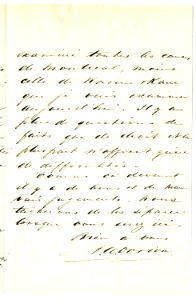 examiné toutes les causes
de Montréal, moins
celle de
que je vais examiner
aujourd'hui. Il y a
plus de questions de
faits que de droit et la
plupart n'offrent guère
de difficultés.
Comme ci devant
il y a de bons et de mau
vais jugements. Nous
tacherons de les séparer
lorsque vous serez ici.
Bien à vous
A A Dorion